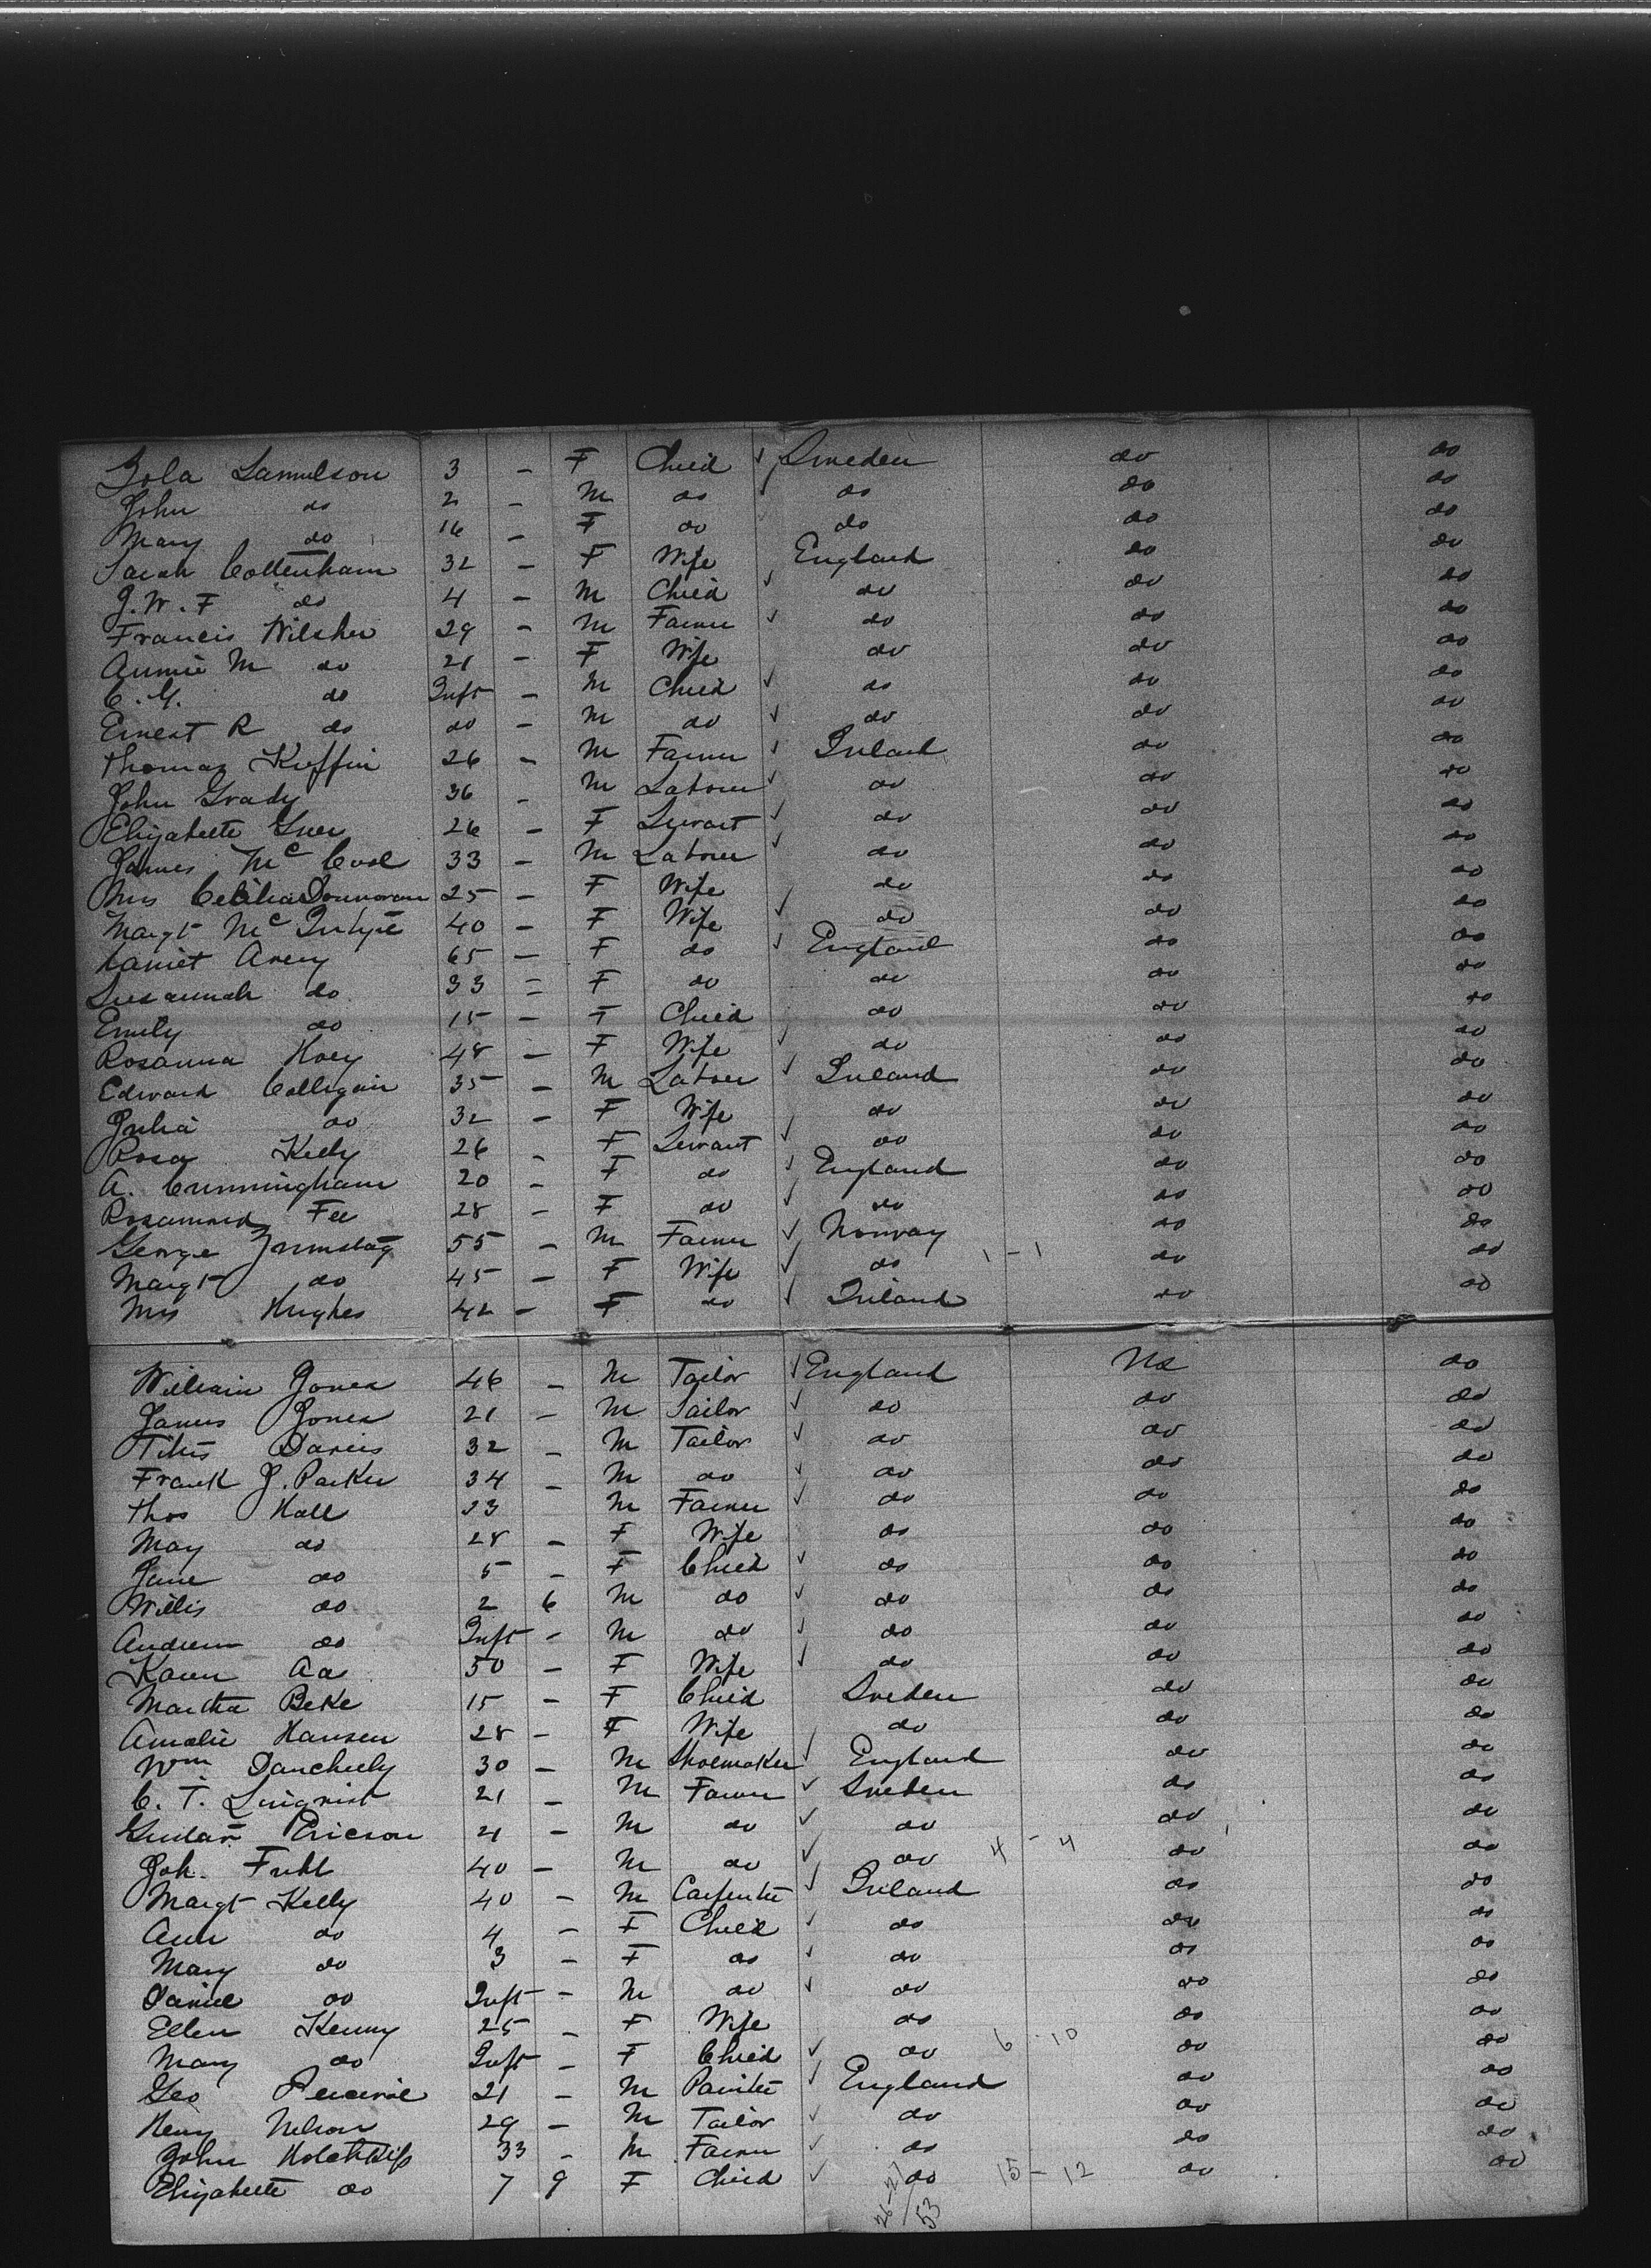 Lola Samulson 3 - F Child ✓ Sweden do do
John do 2 - M do ✓ do do do
Mary do 16 - F do do do do
Sarah Cottenham 32 - F Wife England do do
J. W. F do 4 - M Child ✓ do do do
Francis Wilsher 29 - M Farmer ✓ do do do
Annie M do 21 - F Wife do do do
C. G. do Inft - M Child ✓ do do do
Ernest R do do - M do ✓ do do do
Thomas Kiffin 26 - M Farmer ✓ Ireland do do
John Grady 36 - M Labourer ✓ do do do
Elizabeth 26 - F Servant ✓ do do do
James McCool 33 - M Labourer ✓ do do do
Mrs Cecilia Donnovan 25 - F Wife do do do
Margt McIntyre 40 - F Wife ✓ do do do
Harriet Avery 65 - F do ✓ England do do
Susannah do 33 = F do do do do
Emily do 15 - F Child do do do
Rosanna Hoey 48 - F Wife ✓ do do do
Edward Colligain 35 - M Labourer ✓ Ireland do do
Julia do 32 - F Wife do do do
Rosa Kelly 26 - F Servant ✓ do do do
A. Cunningham 20 - F do ✓ England do do
Rosamond Fee 28 - F do ✓ do do do
George 55 - M Farmer ✓ Norway do do
Margt do 45 - F Wife ✓ do 1 - 1 do do
Mrs Hughes 42 - F do ✓ Ireland do do
William Jones 46 - M Tailor ✓ England US do
James Jones 21 - M Sailor ✓ do do do
Titus Davies 32 - M Tailor ✓ do do do
Frank J. Parker 34 - M do ✓ do do do
Thos Hall 23 M Farmer ✓ do do do
May do 28 - F Wife do do do
Jane do 5 - F Child ✓ do do do
Willis do 2 6 M do ✓ do do do
Andrew do Inft - M do ✓ do do do
Karen Aa 50 - F Wife ✓ do do do
Martha Beke 15 - F Child Sweden do do
Amalie Hansen 28 - F Wife do do do
Wm 30 - M Shoemaker ✓ England do do
C. T. Linqvist 21 - M Farmer ✓ Sweden do do
Gustav Ericson 21 - M do ✓ do do do
Joh. Fuhl 40 - M do ✓ do 4 - 4 do do
Margt Kelly 40 - M Carpenter ✓ Ireland do do
Ann do 4 - F Child ✓ do do do
Mary do 3 - F do ✓ do do do
Daniel do Inft - M do ✓ do do do
Ellen Kenny 25 - F Wife do do do
Mary do Inft - F Child ✓ do 6 - 10 do do
Geo Percival 21 - M Painter ✓ England do do
Henry Nelson 29 - M Tailor ✓ do do do
John Hotchkiss 33 - M Farmer ✓ do do do
Elizabeth do 7 9 F Child ✓ do 15 - 12 do do
26-27/53